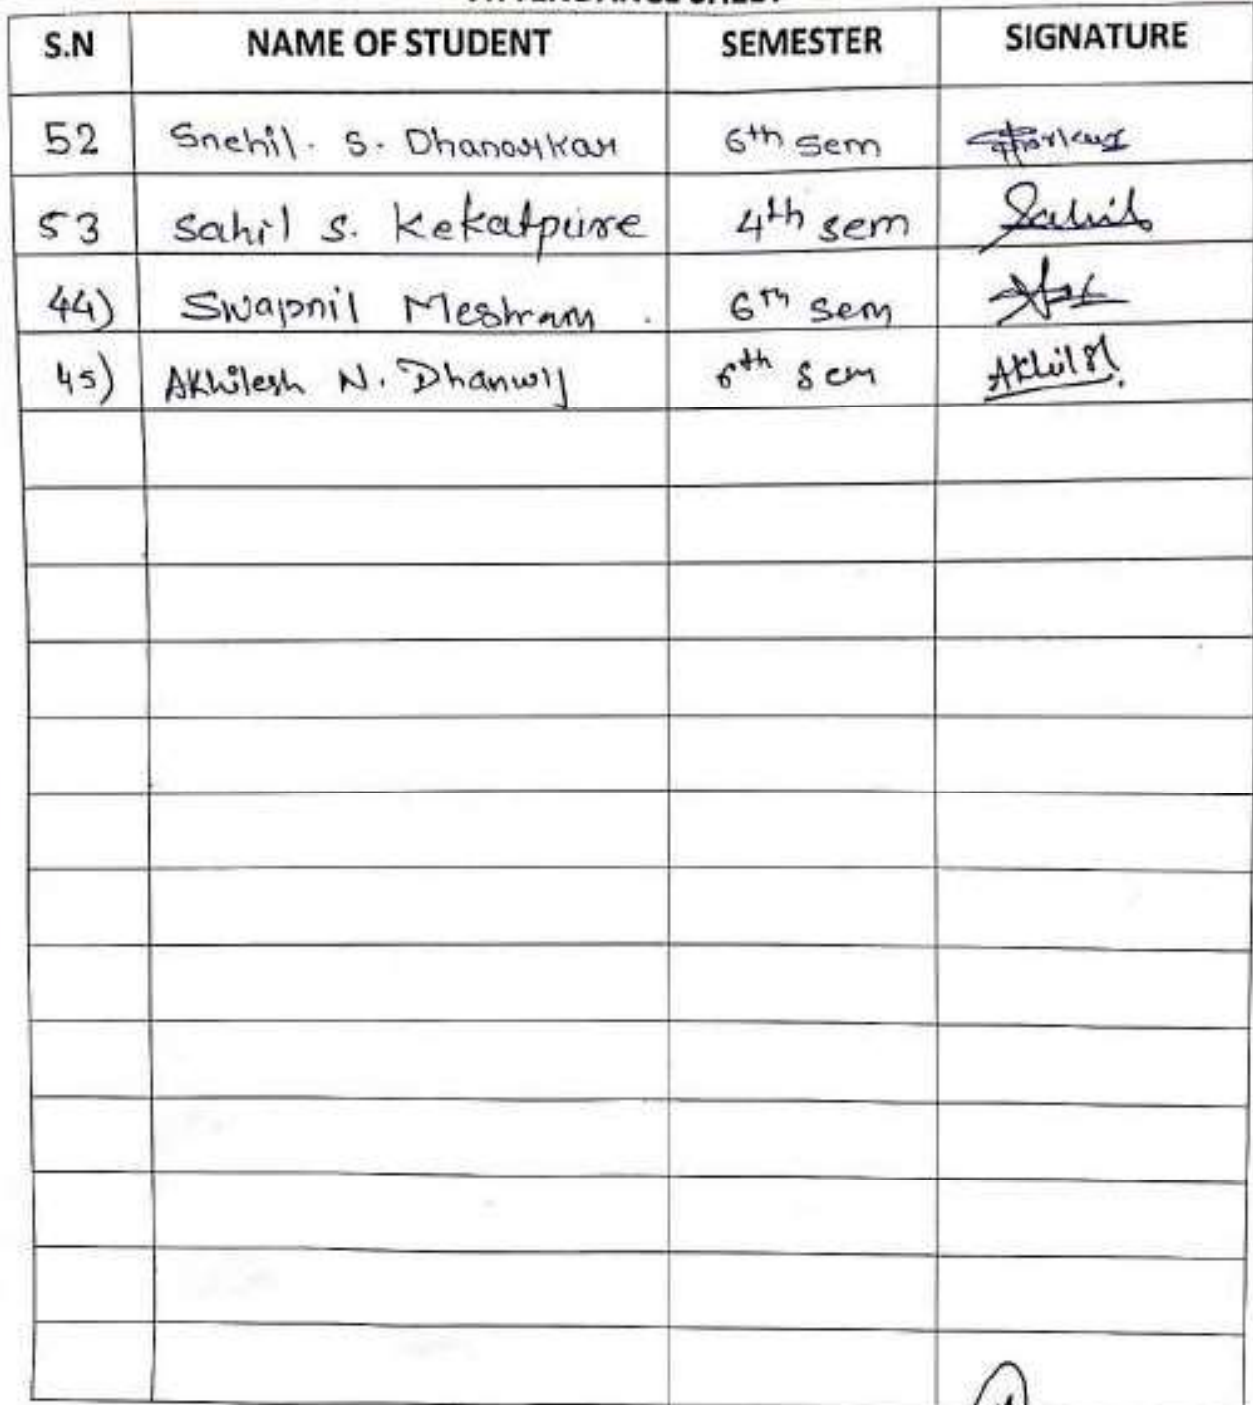 S.N NAME OF STUDENT SEMESTER SIGNATURE
52 Snehil. S. Dhanarkar 6th sem
53 Sahil S. Kekatpure 4th sem Sahil
44) Swapnil Meshram . 6th sem
45) Akhilesh N. Dhanwij 6th sem